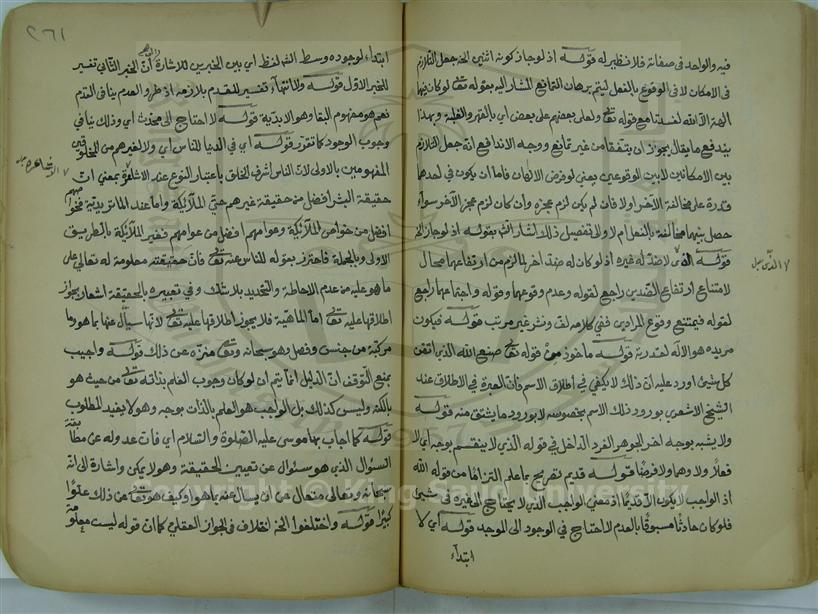 فيه والواحد في صفاته فلا نظير له قوله اذ لو جاز كونه اثنين الخ جعل التلازم
في الامكان لا في الوقوع بالفعل ليتم برهان التمانع المشار اليه بقوله تعالى لو كان فيهما
الهة الا الله لفسدتا مع قوله تعالى ولعلى بعضهم على بعض اي بالقهر والغلبة وبهذا
يندفع ما يقال يجوز ان يتفقا من غير تمانع ووجه الاندفاع انه جعل التلازم
بين الامكانين لا بين الوقوعين يعني لو فرض الالهان فاما ان يكون في احدهما
قدرة على مخالفة الآخر اولا فان لم يكن لزم عجزه وان كان لزم عجز الآخر سوآء
حصل بينهما مخالفة بالفعل ام لا ولا تفصيل ذلك اشار الش بقوله اذ لو جاز الخ
قوله لا ضد له غيره اذ لو كان له ضد اخر لزم من ارتفاعهما محال
لامتناع ارتفاع الضدين راجع لقوله وعدم وقوعهما وقوله واجتماعها راجع
لقوله فيمتنع وقوع المرادين ففي كلامه لف ونشر غير مرتب قوله فيكون
مريده هو الاله لقدرته قوله مأخوذ من قوله تعالى صنع الله الذي اتقن
كل شيئ اورد عليه ان ذلك لا يكفي في اطلاق الاسم فان العبرة في الاطلاق عند
الشيخ الاشعري بورود ذلك الاسم بخصوصه لا بورود ما يشتق منه قوله
ولا يشبه بوجه اخر الجوهر الفرد الداخل في قوله الذي لا ينقسم بوجه اي لا
فعلا ولا وهما ولا فرضا قوله قديم تصريح بما علم التزاما من قوله الله
اذ الواجب لا يكون الا قديما اذ معنى الواجب الذي لا يحتاج الى غيره في شئ
فلو كان حادثا مسبوقا بالعدم لاحتاج في الوجود الى الموجد قوله اي لا
ابتدآء
٢٦١
ابتدآء لوجوده وسط الش لفظ اي بين الخبرين للاشارة الى ان الخبر الثاني تفسير
للخبر الاول قوله ولا انتهآء تفسير للمقدم بلازمه اذ طرو العدم ينافي القدم
نعم هو مفهوم البقا وهو الابدية قوله لاحتاج الى محدث اي وذلك ينافي
وجوب الوجود كما تقرر قوله اي في الدنيا للناس اي ولا لغيرهم من المخلوقين
المفهومين بالاولى لان الناس اشرف الخلق باعتبار النوع عند الاشاعرة بمعنى ان
حقيقة البشر افضل من حقيقة غيرهم حتى الملآئكة واما عند الماتريدية فخواصهم
افضل من خواص الملآئكة وعوامهم افضل من عوامهم فغير الملآئكة بالطريق
الاولى وبالجملة فاحترز بقوله للناس عنه تعالى فان حقيقته معلومة له تعالى على
ما هو عليه من عدم الاحاطة والتحديد بلا شك وفي تعبيره بالحقيقة اشعار بجواز
اطلاقها عليه تعالى اما الماهية فلا يجوز اطلاقها عليه تعالى لانها سيأل عنها بما هو وما
مركبة من جنس وفصل وهو سبحانه وتعالى منزه عن ذلك قوله واجيب
بمنع التوقف ان الدليل انما يتم ان لو كان وجوب العلم بذاته تعالى من حيث هو
بالكنه وليس كذلك بل الواجب هو العلم بالذات بوجه وهو لا يفيد المطلوب
قوله كما اجاب بها موسى عليه الصلوة والسلام اي فان عدوله عن مطابقة
السؤال الذي هو سئوال عن تعيين الحقيقة وهو لا يمكن واشارة الى انه
سبحانه وتعالى متعال عن ان يسأل عنه بما هو او كيف هو تعالى عن ذلك علوا
كبيرا قوله واختلفوا الخ الخلاف في الجواز العقلي كما ان قوله ليست معلومة